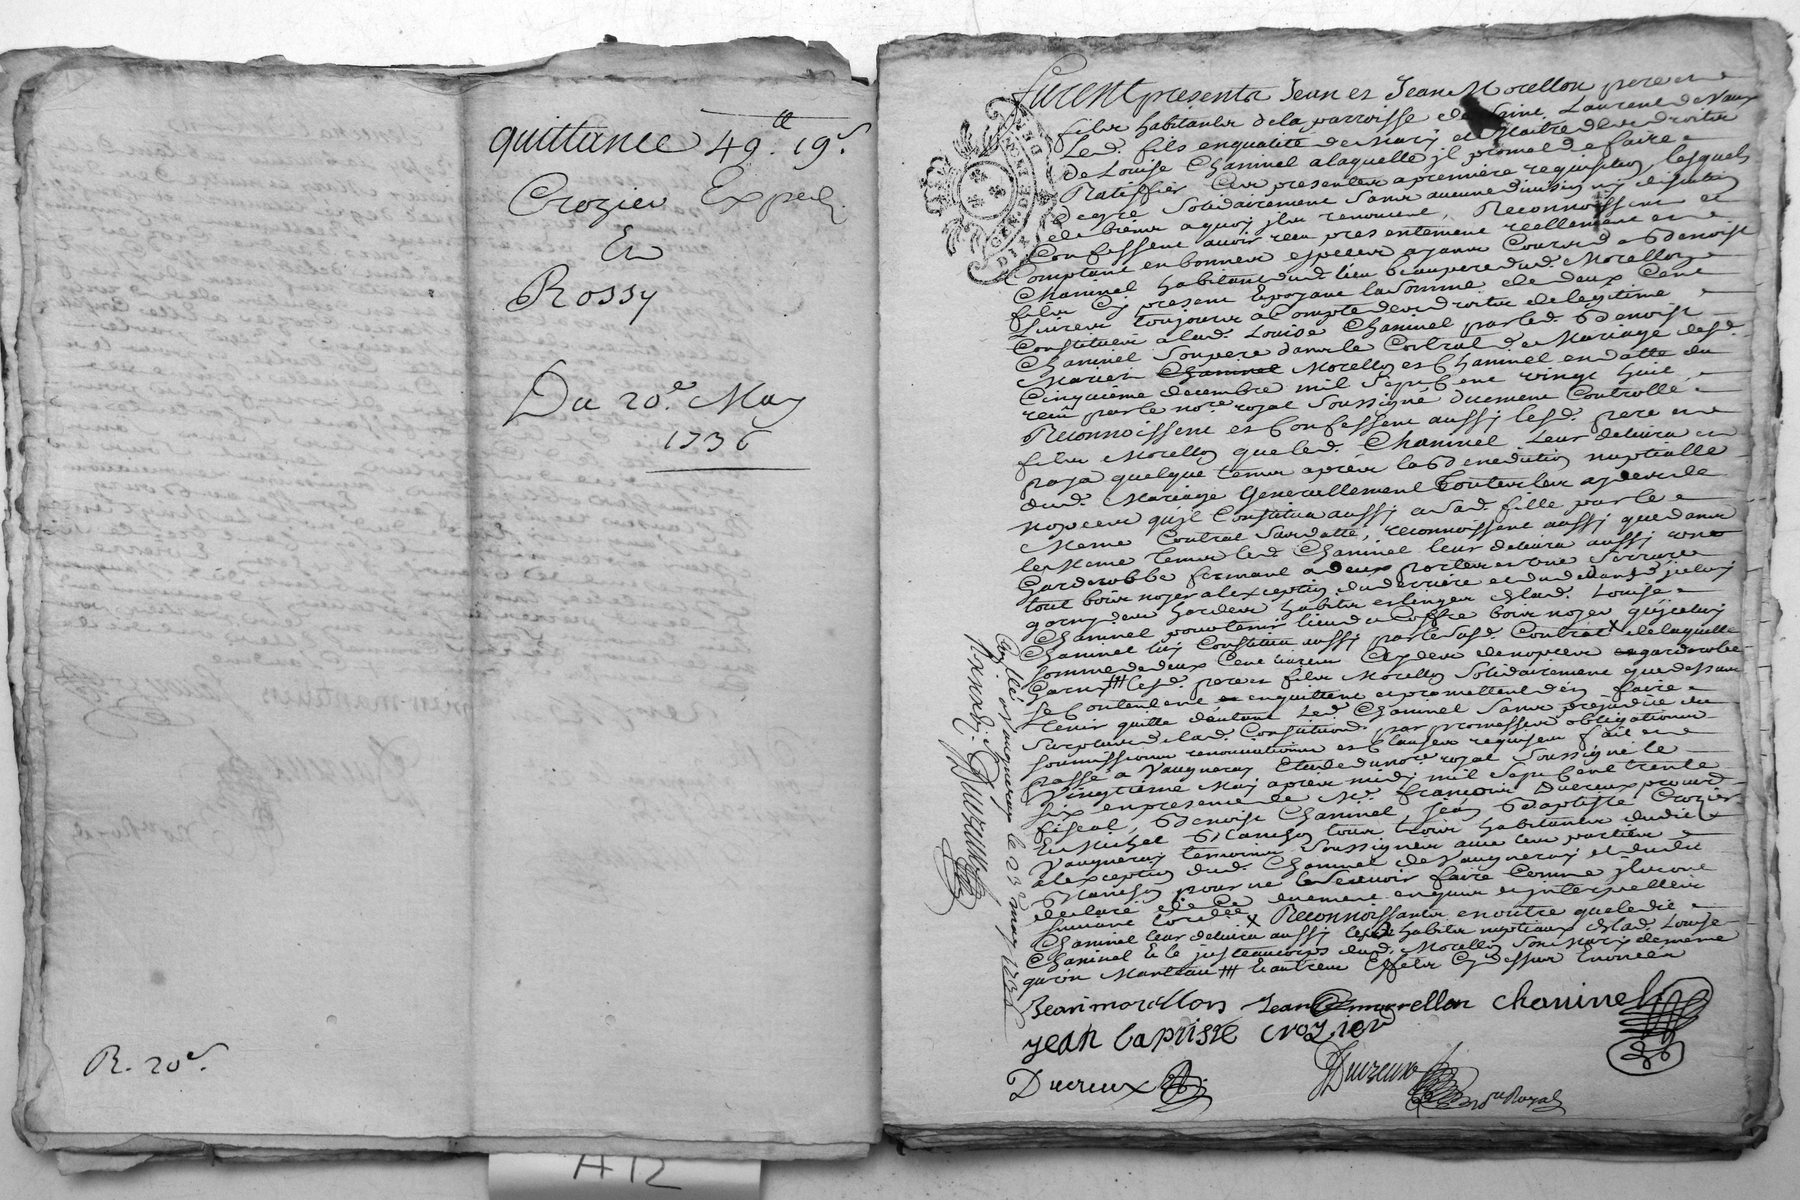 quittance 49.tt 19.s
Crozier Exped.
Et
Rossy
Du 20.e May
1736
R. 20.s
A12
GEN. DE
DIX
Furent presents Jean et Jean Morellon pere et
fils habitants de la parroisse de Saint Laurent de Vaux
Led. fils en qualité de Mary et Maitre des droits
de Louise Chaninel a laquelle jl promet de faire
Ratiffier Ces presentes a première requisition, lesquels
de gré Solidairement Sans aucune division ny discution
de biens a quoy jls renoncent, Reconnoissent et
Confessent avoir recu presentement reellement et
Comptant en bonnes especes ayant Cours de Benoist
Chaninel habitant dud. lieu beaupere dud. Morellon
fils Cy present et payant la Somme de deux Cent
Livres toujours a Compte des droits de legitime
Constitués a lad. Louise Chaninel par led. Benoist
Chaninel Son pere dans le Contrat de Mariage desd.
Mariés Chaninel Morellon et Chaninel en datte du
Cinquieme decembre mil Sept Cent vingt huit,
reçu par le no.re royal Soussigné duement Controllé
Reconnoissent et Confessent aussi lesd. pere et
fils Morellon que led. Chaninel Leur delivra et
paya quelque tems après la Benediction nuptialle
dud. Mariage Generallement toutes les aydes de
nopces qu'jl Constitua aussi a Sad. fille par le
Meme Contrat Sus datté, reconnoissent aussi que dans
le Meme tems led. Chaninel leur delivra aussi une
Garderobbe fermant a deux portes et une Serrure
tout bois noyer a l'exception du derrière et du dedans, jcelui
garny des hardes habits et linges de lad. Louise
Chaninel pour tenir lieu du Coffre bois noyer qu'jceluy
Chaninel luy Constitua aussi par le Susd. Contrat x de laquelle
Somme de deux Cent Livres Aydes de nopces et garderobbe
Garny lesd. pere et fils Morellon Solidairement que dessus
Se Contentent et en quittent et promettent d'en faire
tenir quitte d'autant led. Chaninel Sans prejudice du
Surplus de lad. Constitution par promesses obligations
Soumissions renonciations et Clauses requises fait et
passé a Vaugneray Etude du no.re royal Soussigné le
Vingtième May après midy mil Sept Cent trente
Six en presence de M.e françois Ducreux procur.
fiscal, Benoist Chaninel, Jean Baptiste Crozier
et Michel Planchon tous trois habitants dudit
Vaugneray temoins Soussignés avec les parties
a l'exception dud. Chaninel de Vaugneray et dudit
Planchon pour ne le Scavoir faire Comme jls ont
declaré de Ce duement enquis et jnterpellés
Suivant l'ordce x Reconnoissants en outre que ledit
Chaninel leur delivra aussi les habits nuptiaux de lad. Louise
Chaninel et le justeaucorps dud. Morellon Son Mary de meme
qu'un Manteau et autres Effets Cy dessus Enoncés
Jean morellon Jean morellon chaninel
jean baptiste crozier
Ducreux
Ducreux
no.re Royal
Con.llé a Vaugneray le 23.e may 1736